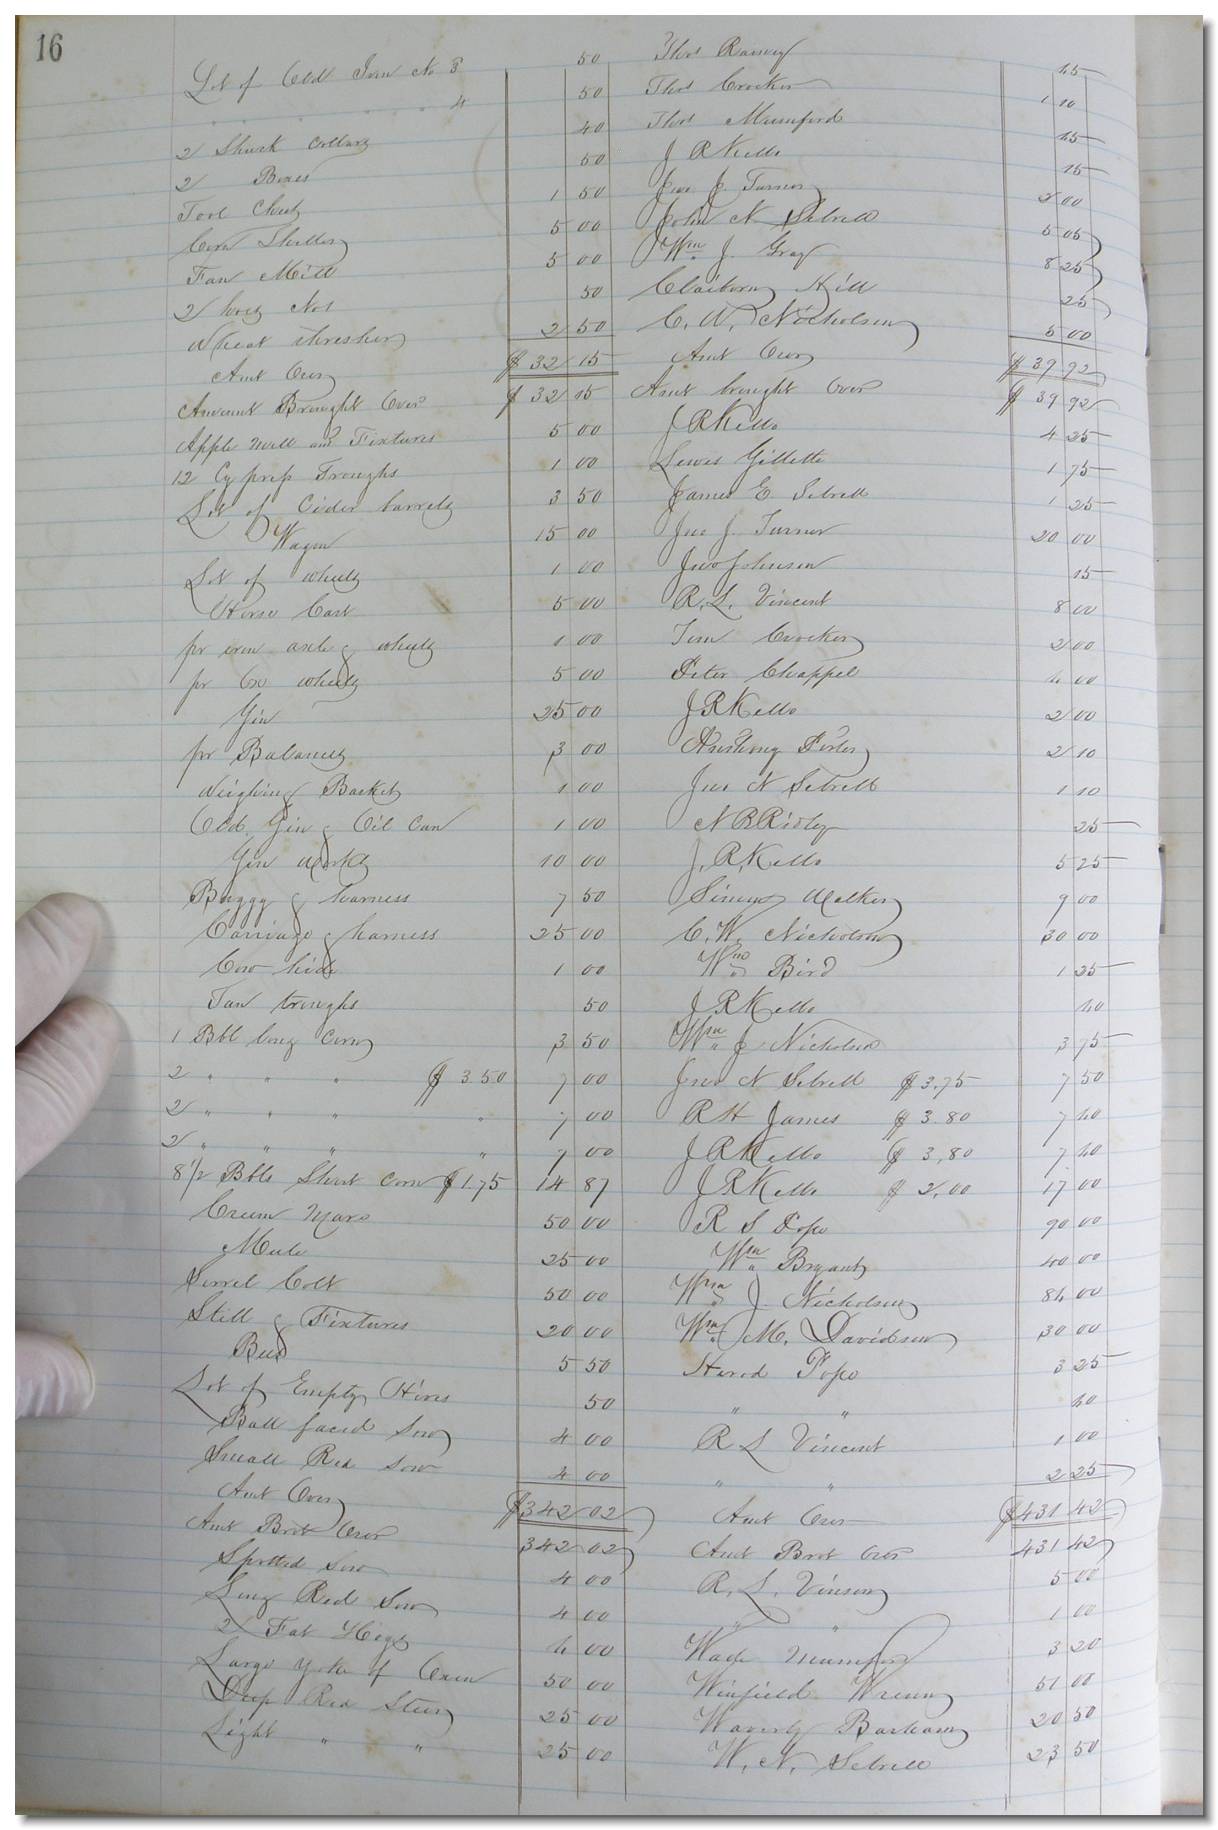 16
Lot of Old Iron No 3 50 Thos Ramsey 45
" " " " " 4 50 Thos Crocker 1 10
2 Shuck Collars 40 Thos Mumford 45
2 Boxes 50 J R Kello 15
Tool Chest 1 50 Jno J. Turner 2 00
Corn Sheller 5 00 John N. Sebrell 5 05
Fan Mill 5 00 Wm J. Gray 8 25
2 50 Claiborn Hill 25
Wheat thresher 2 50 C. W. Nicholson 5 00
Amt Over $32 15 Amt Over $39 92
Amount Brought Over $32 15 Amt brought Over $39 92
Apple Mill and Fixtures 5 00 J R Kello 4 25
12 Cypress Troughs 1 00 Lewis Gillette 1 75
Lot of Cider barrels 3 50 James E. Sebrell 1 25
Wagon 15 00 Jno J. Turner 20 00
Lot of wheels 1 00 Jno Johnson 15
Horse Cart 5 00 R. L. Vincent 8 00
pr iron axle & wheels 1 00 Tom Crocker 2 00
pr Ox wheels 5 00 Peter Chappel 4 00
Gin 25 00 J R Kello 2 00
pr Balances 3 00 Anthony Porter 2 10
Weighing Basket 1 00 Jno N Sebrell 1 10
Old Gin & Oil Can 1 00 N B Ridley 25
Gin works 10 00 J. R. Kello 5 25
Buggy & harness 7 50 Simon Walker 9 00
Carriage & harness 25 00 C. W. Nicholson 30 00
Cow hide 1 00 Wm Bird 1 25
Tan troughs 50 J R Kello 40
1 Bbl long Corn 3 50 Wm J Nicholson 3 75
2 " " " $3.50 7 00 Jno N Sebrell $3.75 7 50
2 " " " " 7 00 R H James $3.80 7 60
2 " " " " 7 00 J R Kello $3.80 7 60
8 1/2 Bbls Short Corn $1.75 14 87 J R Kello $2.00 17 00
Cream Mare 50 00 R S Pope 90 00
Mule 25 00 Wm Bryant 40 00
Sorrel Colt 50 00 Wm J. Nicholson 84 00
Still & Fixtures 20 00 Wm M. Davidson 30 00
Bees 5 50 Herod Pope 3 25
Lot of Empty Hives 50 " " 40
Ball faced Sow 4 00 R L Vincent 1 00
Small Red Sow 4 00 " " 2 25
Amt Over $342 02 Amt Over $431 42
Amt Brot Over 342 02 Amt Brot Over 431 42
Spotted Sow 4 00 R. L. Vinson 5 00
Long Red Sow 4 00 " " 1 00
2 Fat Hogs 4 00 Wade Mumford 3 20
Large yoke of Oxen 50 00 Winfield Wrenn 51 00
Deep Red Steer 25 00 Waverly Barham 20 50
Light " " 25 00 W. N. Sebrell 23 50